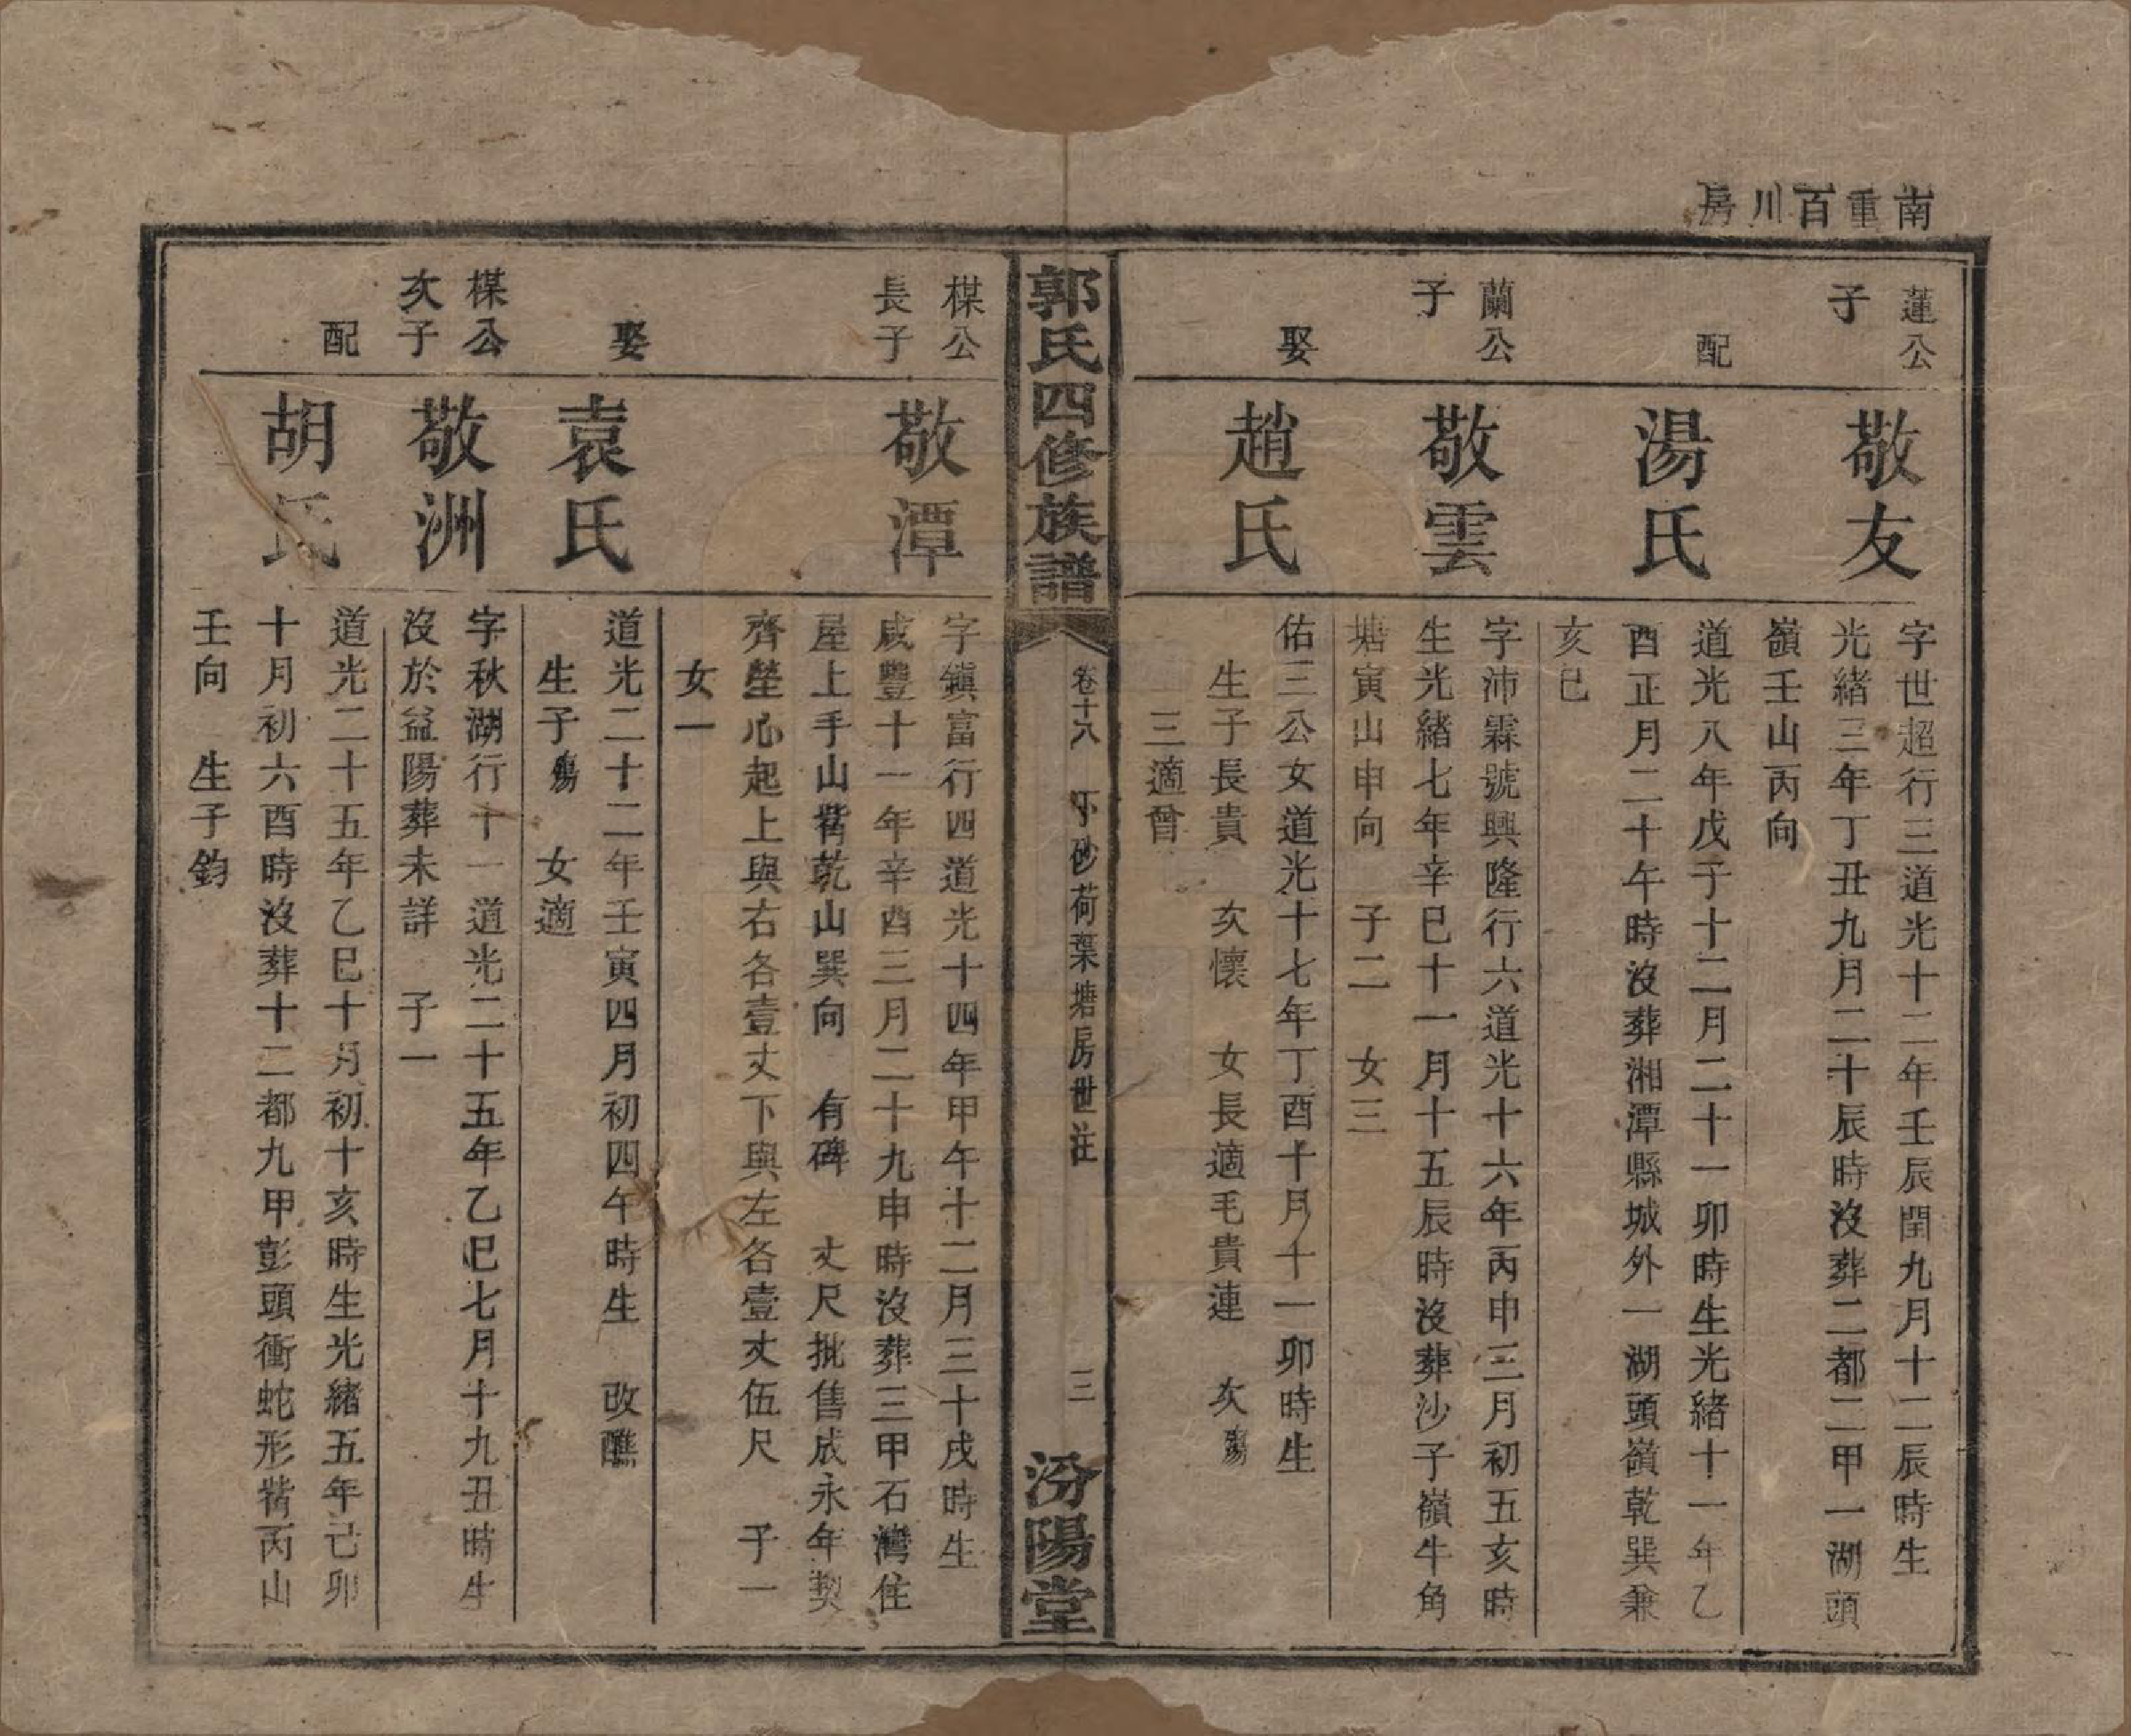 南重百川房
蓮公
子
敬友
字世超行三道光十二年壬辰閏九月十二辰時生
光緒三年丁丑九月二十辰時沒葬二都二甲一湖頭
嶺壬山丙向
配
湯氏
道光八年戊子十二月二十一卯時生光緒十一年乙
酉正月二十午時沒葬湘潭縣城外一湖頭嶺乾巽兼
亥巳
蘭公
子
敬雲
字沛霖號興隆行六道光十六年丙申三月初五亥時
生光緒七年辛巳十一月十五辰時沒葬沙子嶺牛角
塘寅山申向 子二 女三
娶
趙氏
佑三公女道光十七年丁酉十月十一卯時生
生子長貴 次懷 女長適毛貴連 次殤
三適曾
郭氏四修族譜
卷十六 下砂荷葉塘房世注
三
汾陽堂
楳公
長子
敬潭
字鎮富行四道光十四年甲午十二月三十戌時生
咸豐十一年辛酉三月二十九申時沒葬三甲石灣住
屋上手山觜乾山巽向 有碑 丈尺批售成永年契
齊塋心起上與右各壹丈下與左各壹丈伍尺 子一
女一
娶
袁氏
道光二十二年壬寅四月初四午時生 改醮
生子殤 女適
楳公
次子
敬洲
字秋湖行十一道光二十五年乙巳七月十九丑時生
沒於益陽葬未詳 子一
配
胡氏
道光二十五年乙巳十月初十亥時生光緒五年己卯
十月初六酉時沒葬十二都九甲彭頭衝蛇形觜丙山
壬向 生子鈞